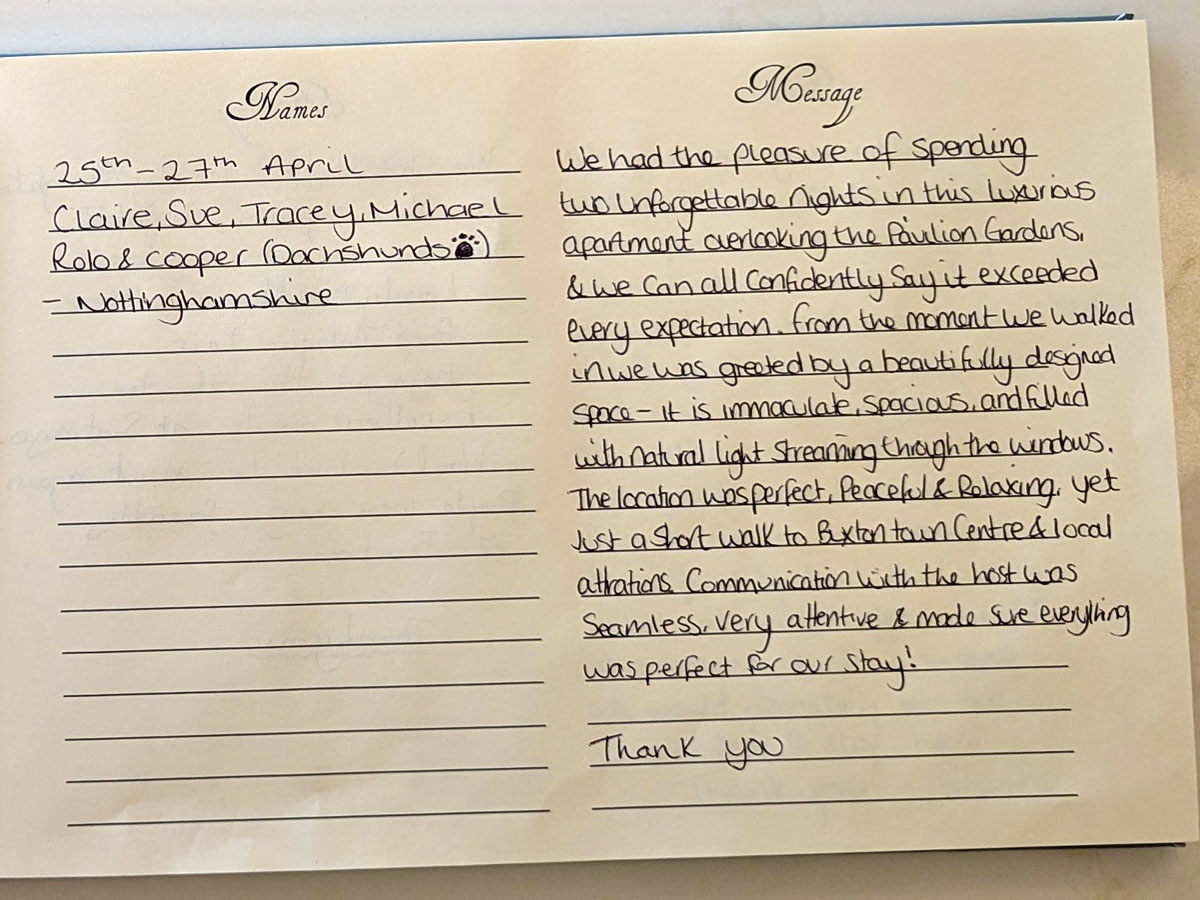 Names
25th - 27th April
Claire, Sue, Tracey, Michael
Rolo & Cooper (Dachshunds)
- Nottinghamshire
Message
We had the pleasure of spending
two unforgettable nights in this luxurious
apartment overlooking the Pavilion Gardens,
& we can all confidently say it exceeded
every expectation. From the moment we walked
in we was greeted by a beautifully designed
space - it is immaculate, spacious, and filled
with natural light streaming through the windows.
The location was perfect, Peaceful & Relaxing, yet
Just a short walk to Buxton town Centre & local
attrations. Communication with the host was
Seamless, very attentive & made sure everything
was perfect for our stay!
Thank you